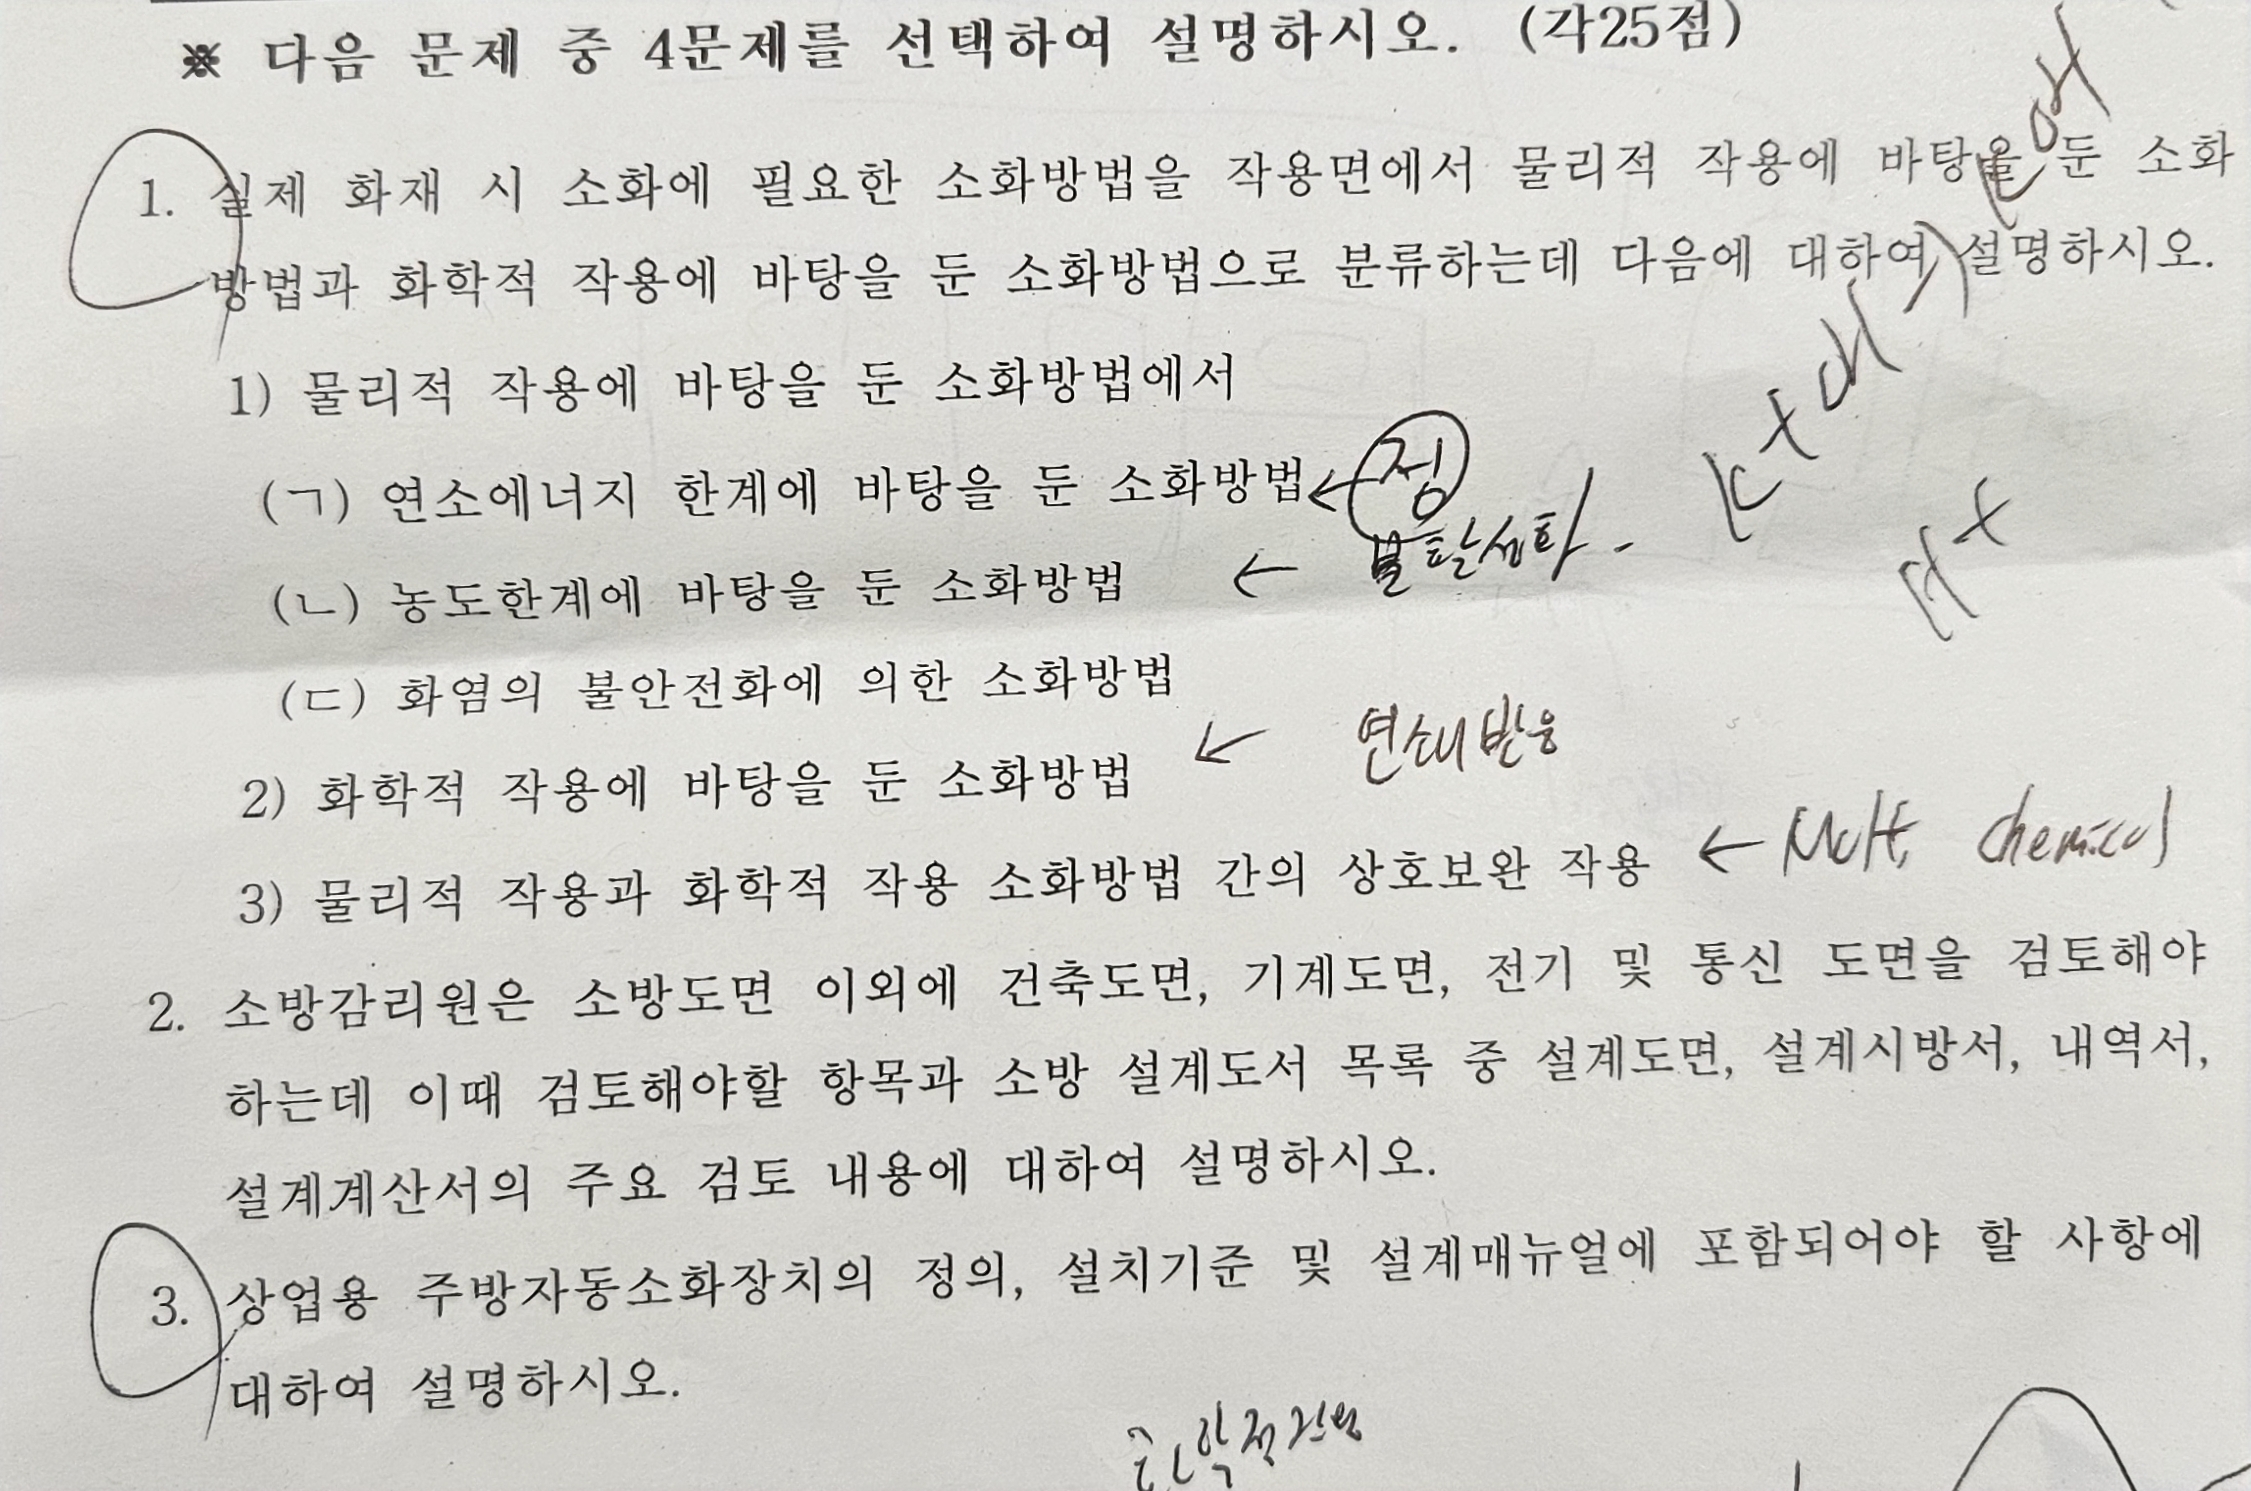 ※ 다음 문제 중 4문제를 선택하여 설명하시오. (각25점)
1. 실제 화재 시 소화에 필요한 소화방법을 작용면에서 물리적 작용에 바탕을 둔 소화
방법과 화학적 작용에 바탕을 둔 소화방법으로 분류하는데 다음에 대하여 설명하시오.
1) 물리적 작용에 바탕을 둔 소화방법에서
(ㄱ) 연소에너지 한계에 바탕을 둔 소화방법 ←
(ㄴ) 농도한계에 바탕을 둔 소화방법 ← 불활성화
(ㄷ) 화염의 불안전화에 의한 소화방법
2) 화학적 작용에 바탕을 둔 소화방법 ← 연쇄반응
3) 물리적 작용과 화학적 작용 소화방법 간의 상호보완 작용 ← chemical
2. 소방감리원은 소방도면 이외에 건축도면, 기계도면, 전기 및 통신 도면을 검토해야
하는데 이때 검토해야할 항목과 소방 설계도서 목록 중 설계도면, 설계시방서, 내역서,
설계계산서의 주요 검토 내용에 대하여 설명하시오.
3. 상업용 주방자동소화장치의 정의, 설치기준 및 설계매뉴얼에 포함되어야 할 사항에
대하여 설명하시오.